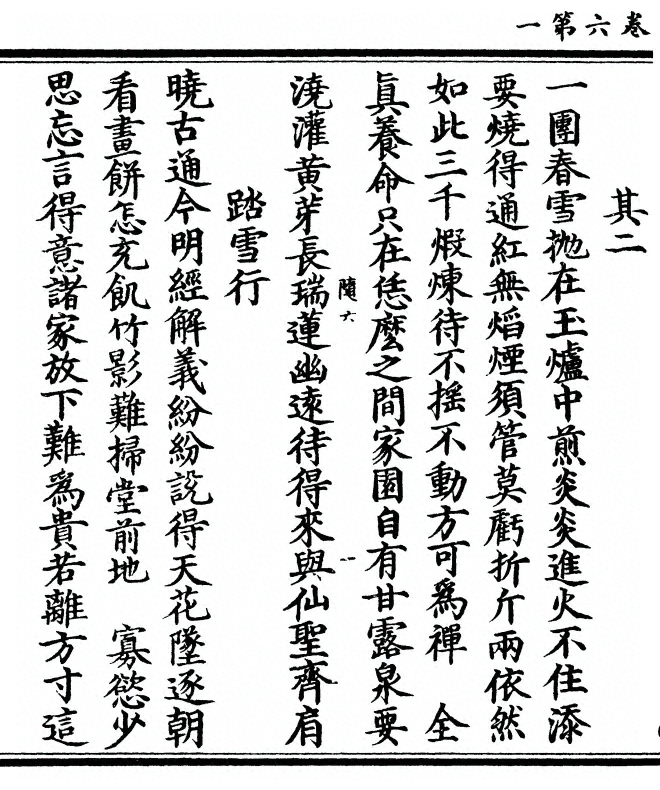 卷六第一
其二
一團春雪抛在玉爐中煎炎炎進火不住添
要燒得通紅無熖煙須管莫虧折斤兩依然
如此三千煆煉待不摇不動方可爲禪　全
眞養命只在恁麽之間家園自有甘露泉要
澆灌黄芽長瑞蓮幽遠待得來與仙聖齊肩
隨六
踏雪行
曉古通今明經解義紛紛說得天花墜逐朝
看畫餅怎充飢竹影難掃堂前地　寡慾少
思忘言得意諸家放下難爲貴若離方寸這